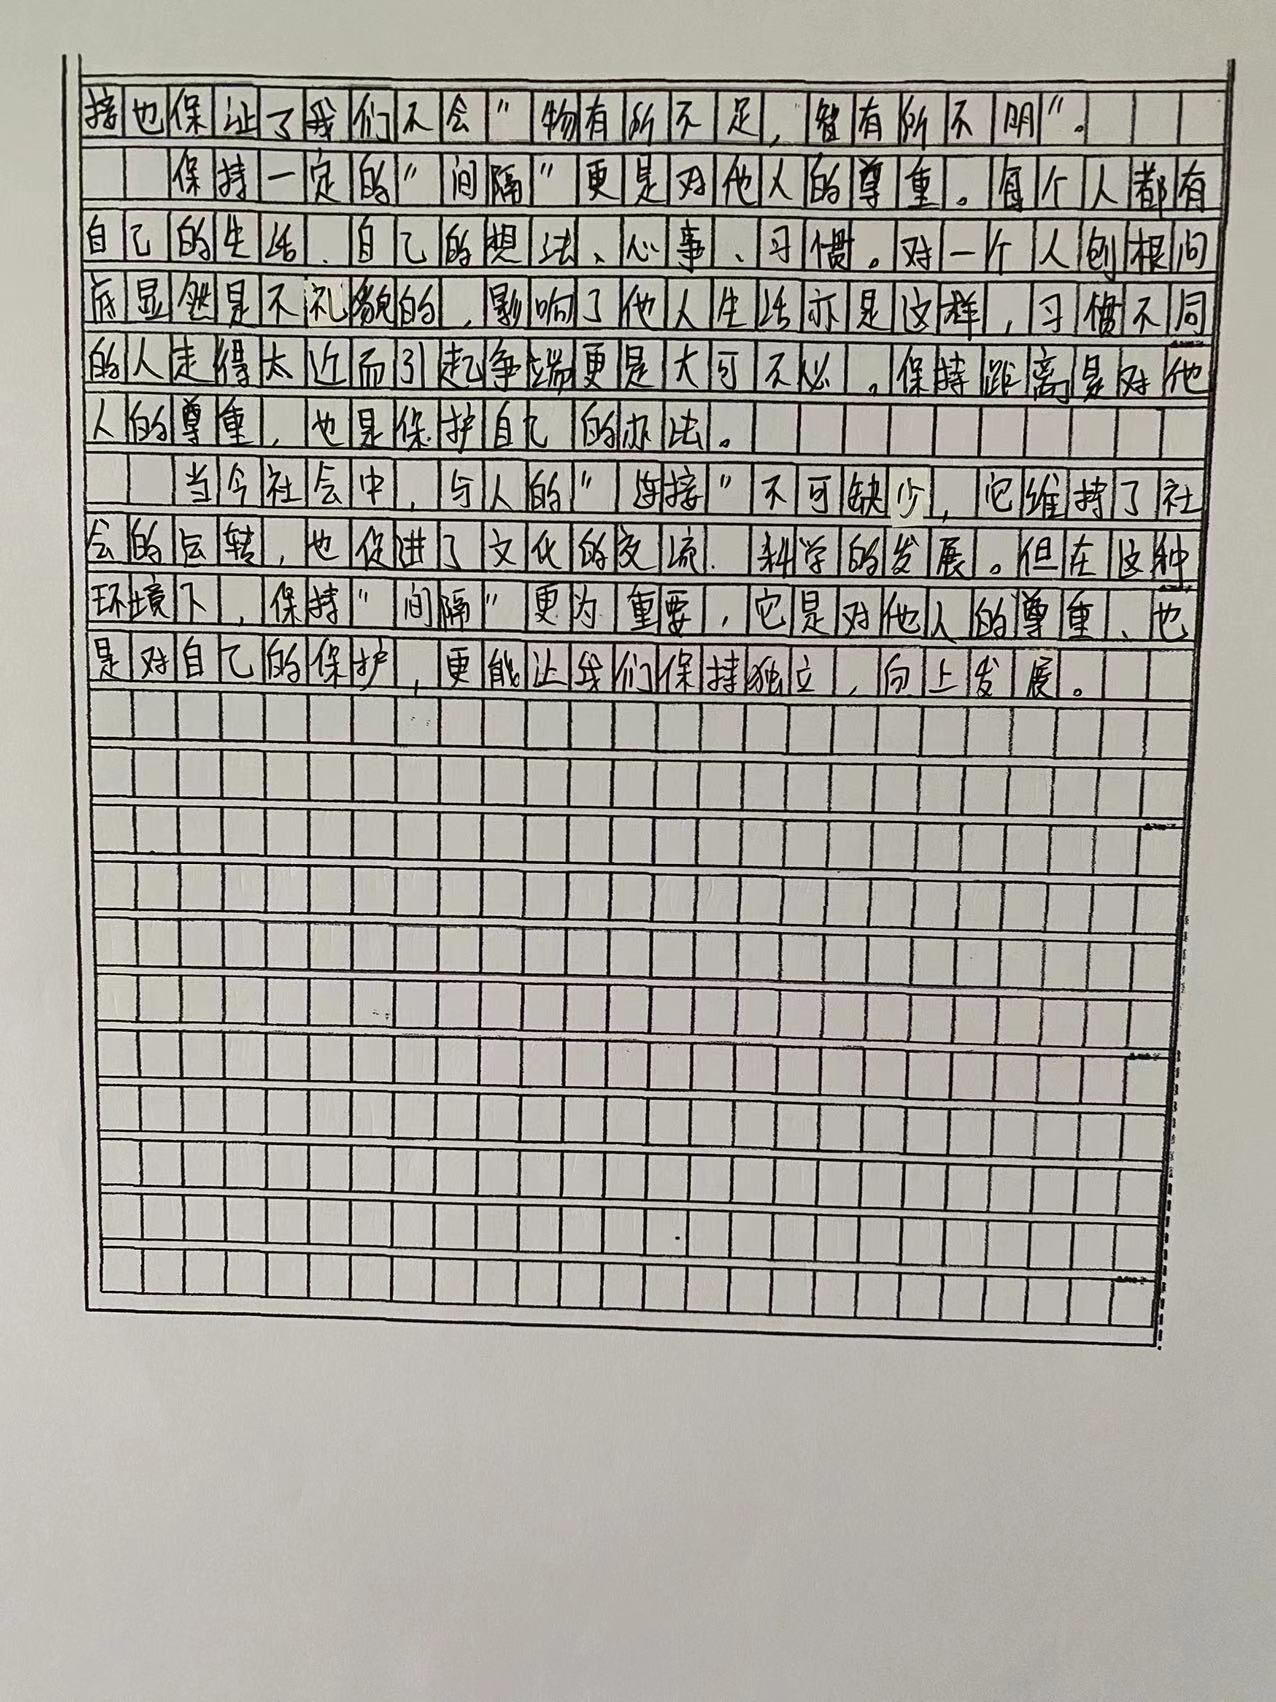 接也保证了我们不会“物有所不足，智有所不明”。
保持一定的“间隔”更是对他人的尊重。每个人都有
自己的生活、自己的想法、心事、习惯。对一个人刨根问
底显然是不礼貌的，影响了他人生活亦是这样，习惯不同
的人走得太近而引起争端更是大可不必。保持距离是对他
人的尊重，也是保护自己的办法。
当今社会中，与人的“连接”不可缺少，它维持了社
会的运转，也促进了文化的交流、科学的发展。但在这种
环境下，保持“间隔”更为重要，它是对他人的尊重、也
是对自己的保护，更能让我们保持独立，向上发展。